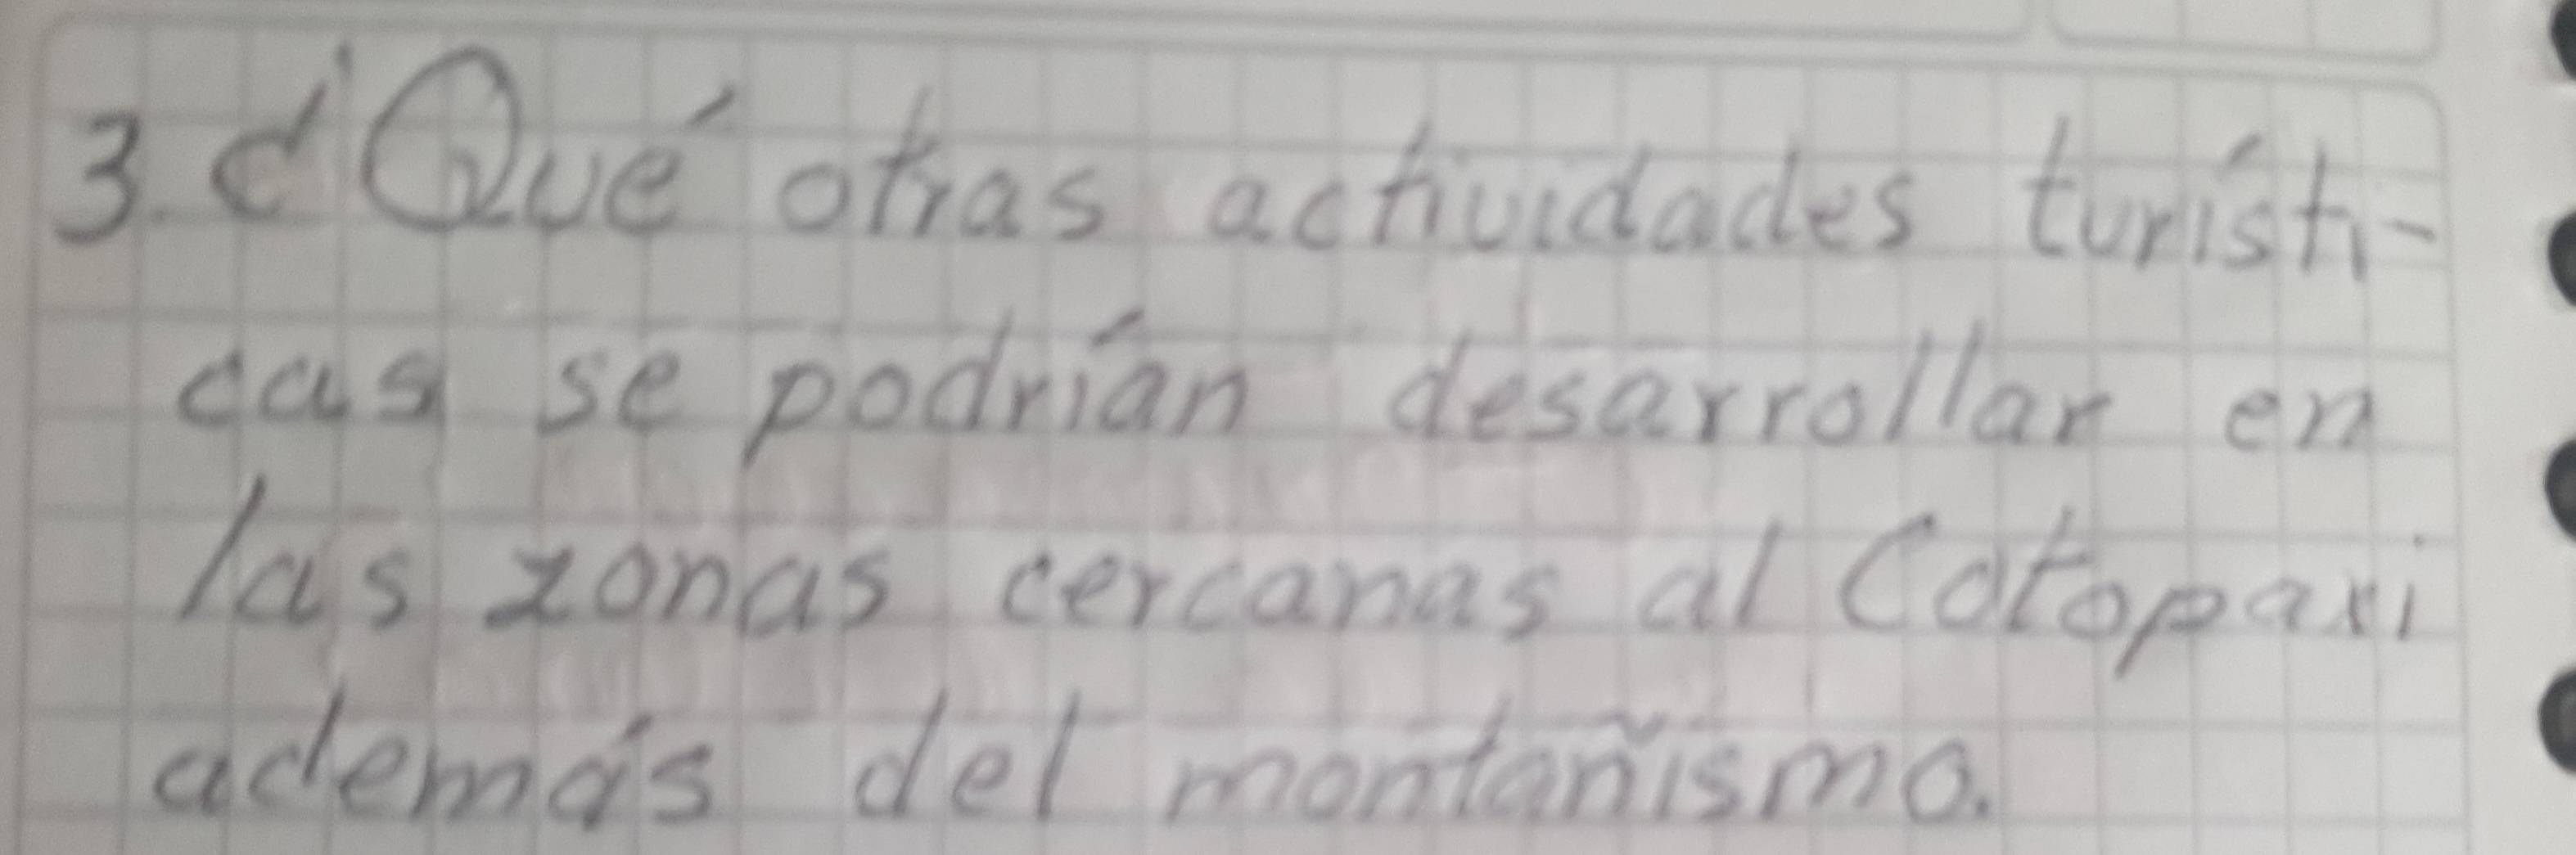 3. ¿Qué otras actividades turísti-
cas se podrían desarrollar en
las zonas cercanas al Cotopaxi
además del montañismo.